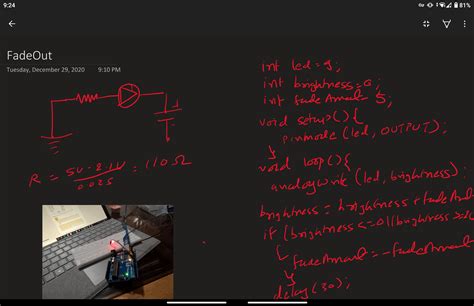 9:24
81%
FadeOut
Tuesday, December 29, 2020 9:10 PM
R = 5V-2.1V = 110Ω
0.025
int led = 9;
int brightness = 0;
int fadeAmount = 5,
void setup(){
pinmode (led, OUTPUT);
}
void loop(){
analogWrite (led, brightness);
brightness = brightness + fadeAm
if (brightness <= 0 || brightness >=
{
fadeAmount = -fadeAmount
}
delay (30);